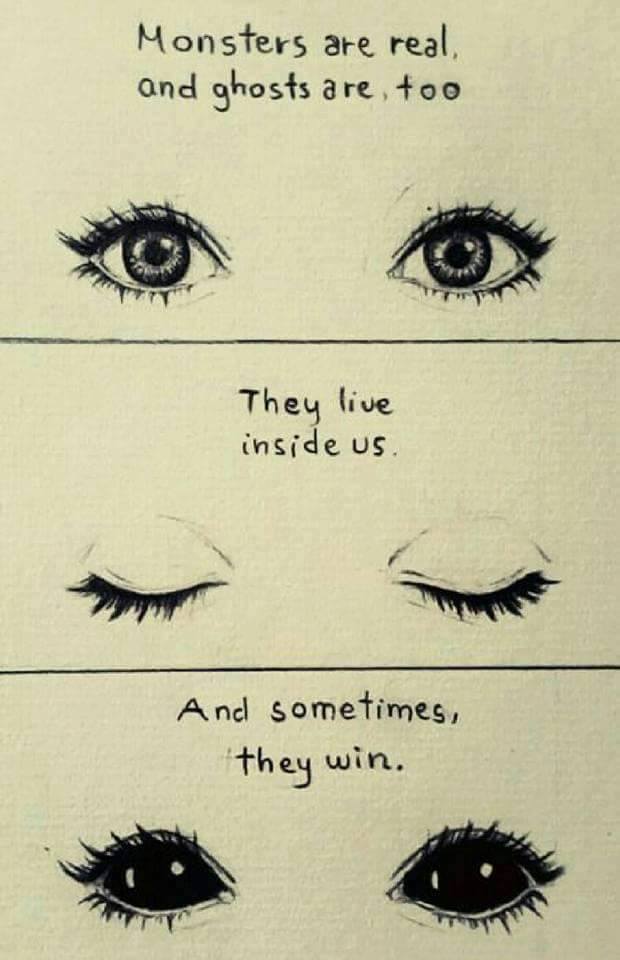 Monsters are real,
and ghosts are, too
They live
inside us.
And sometimes,
they win.